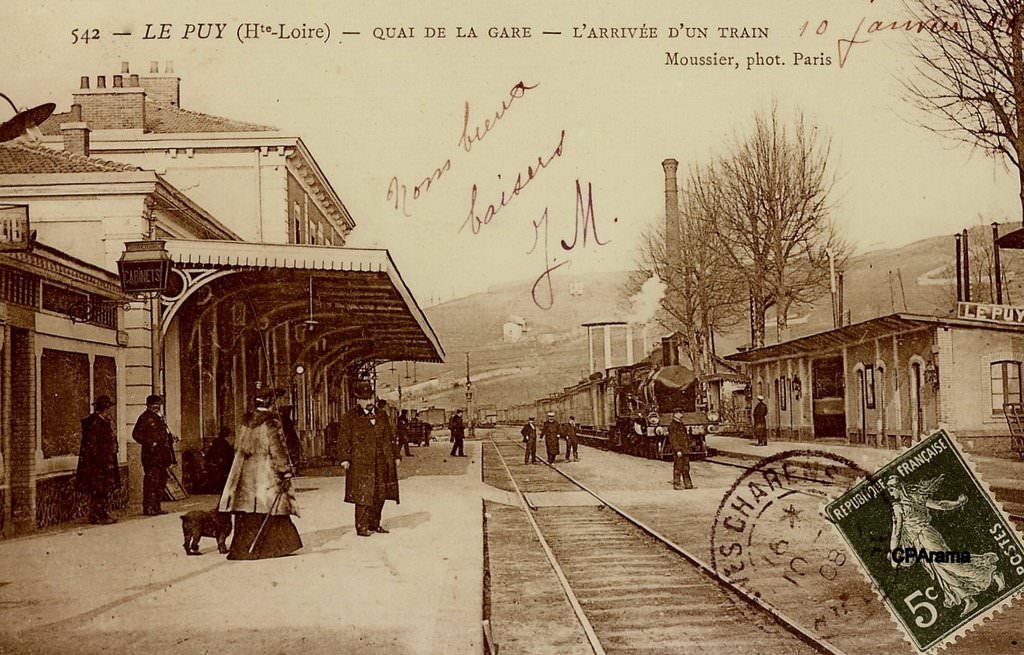 542 — LE PUY (Hte-Loire) — QUAI DE LA GARE — L'ARRIVÉE D'UN TRAIN
10 janvier
Moussier, phot. Paris
Nons bieux
baisers
J. M.
CABINETS
LE PUY
CHAR
16
10
08
RÉPUBLIQUE FRANÇAISE
POSTES
5c
CPArama